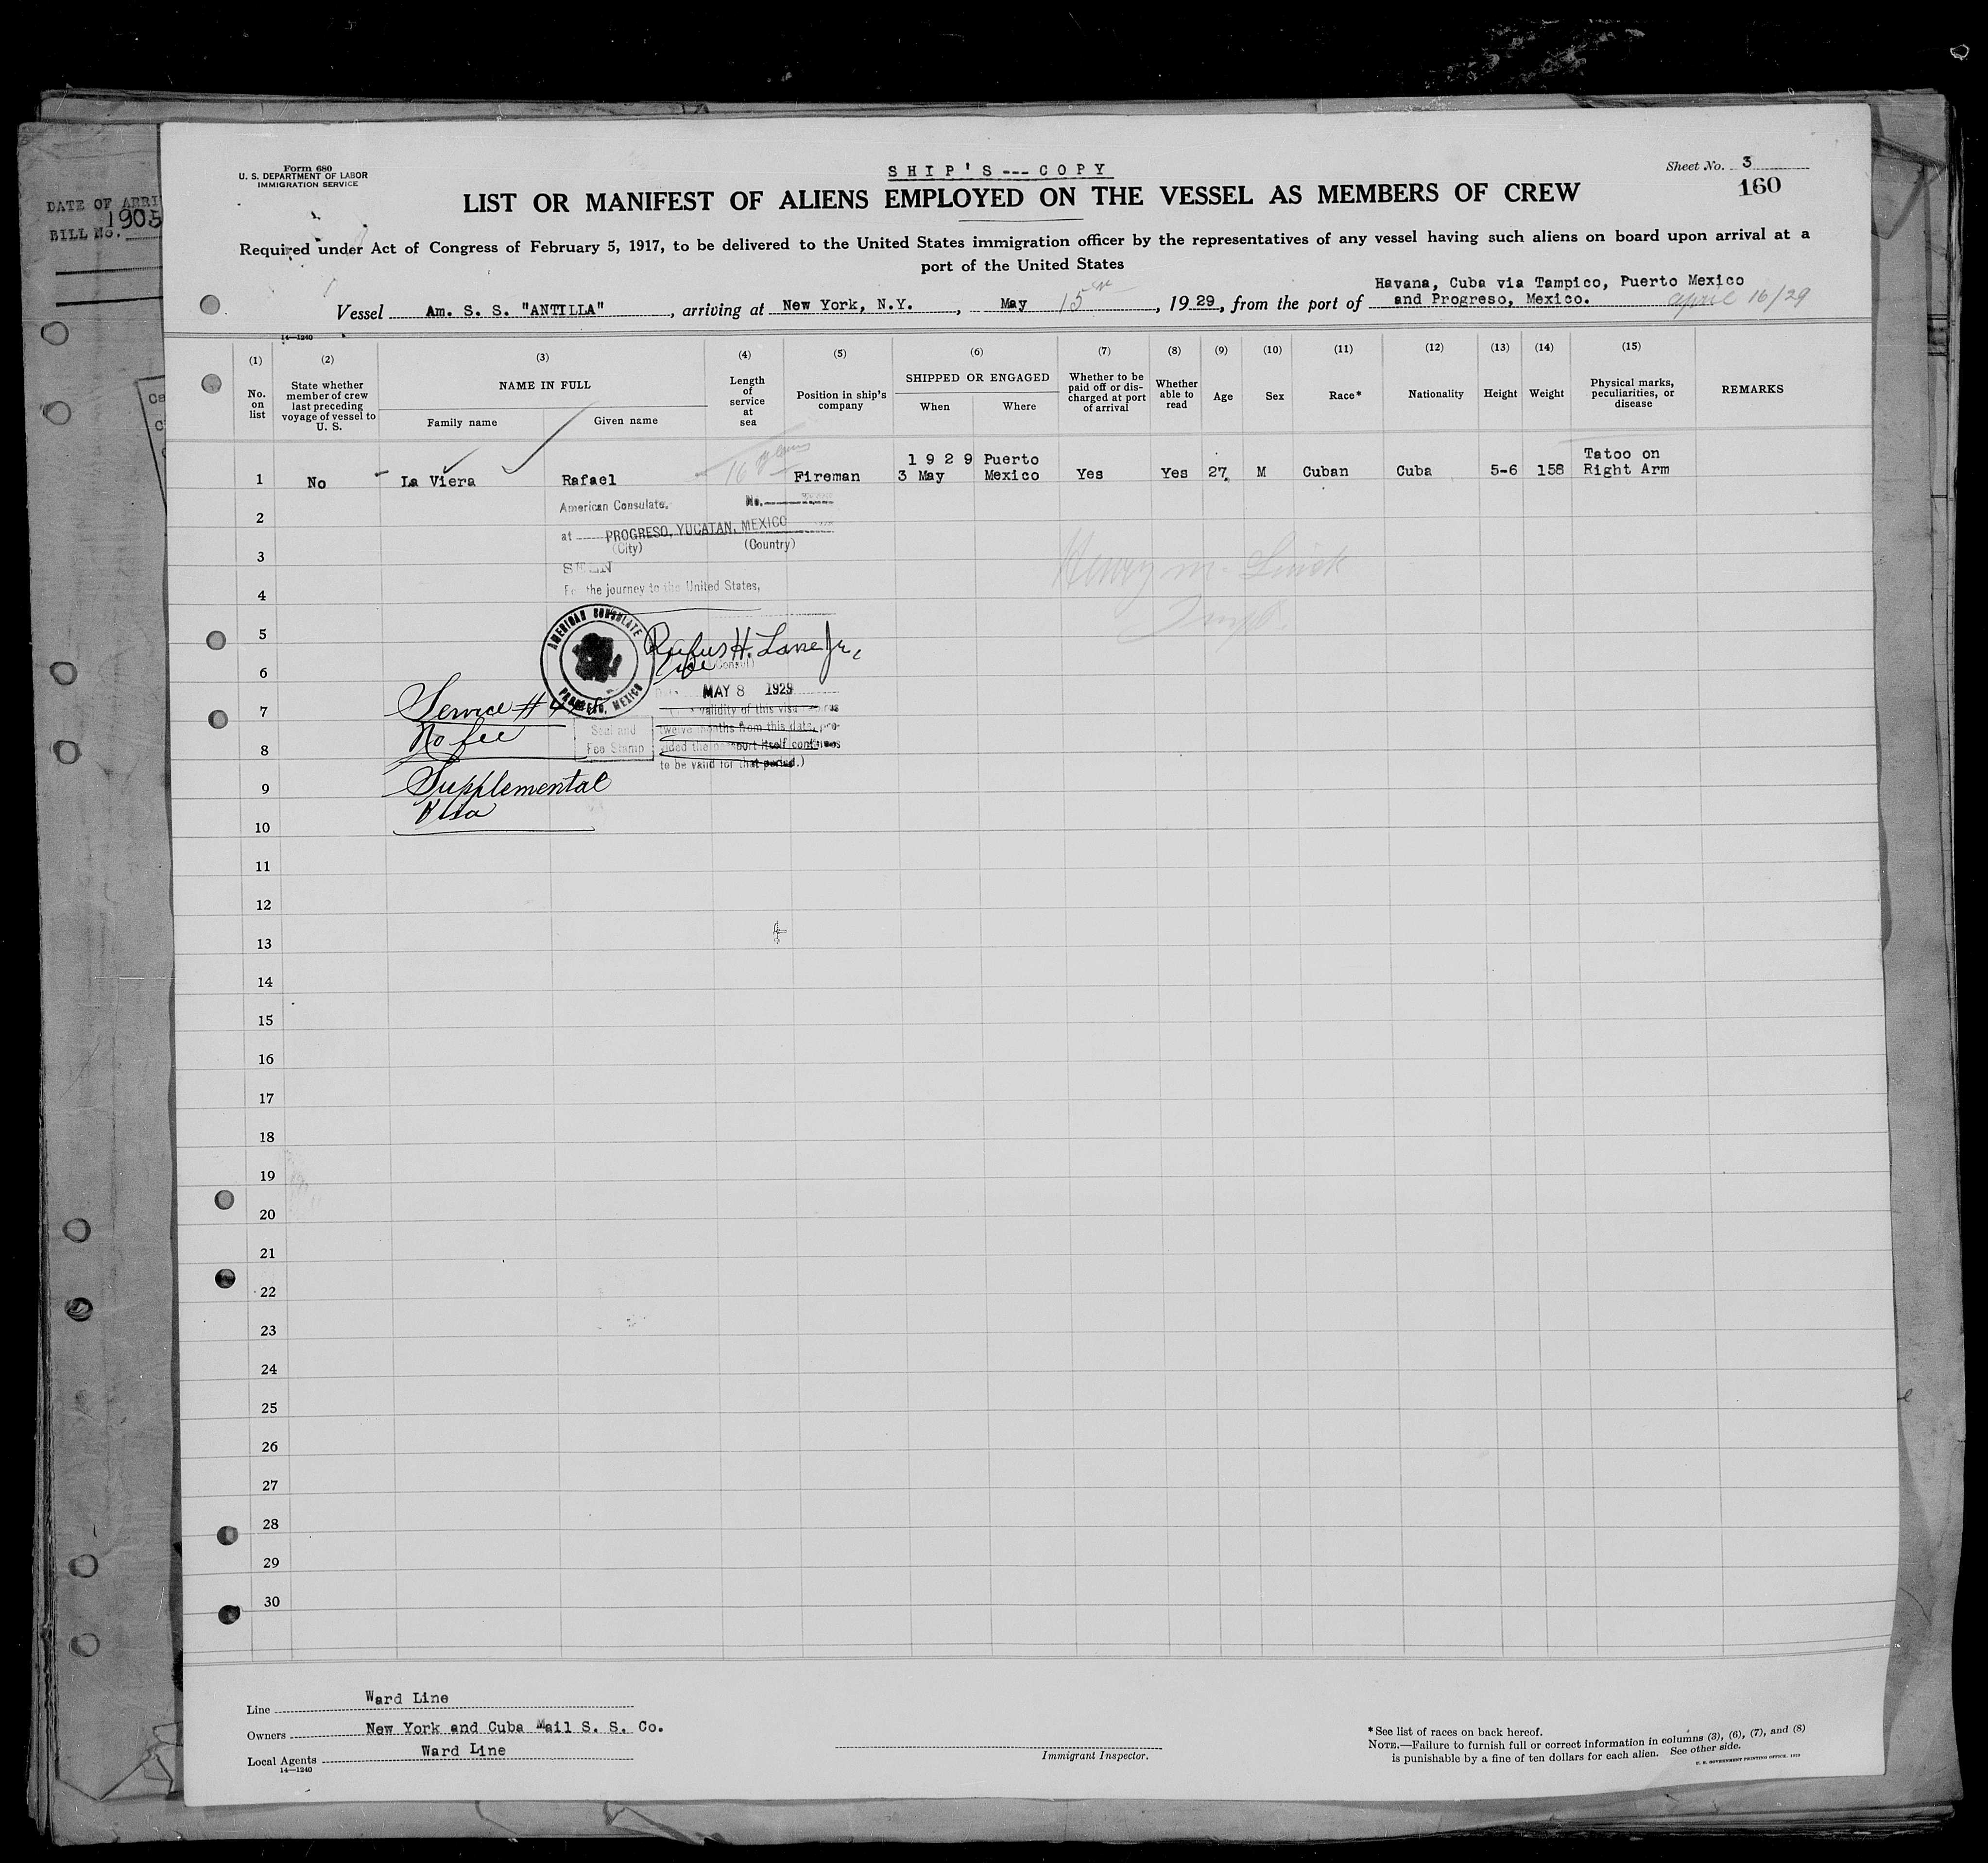 DATE OF ARRI
1905
BILL No.
Form 680
U. S. DEPARTMENT OF LABOR
IMMIGRATION SERVICE
SHIP'S --- COPY
Sheet No. 3
160
LIST OR MANIFEST OF ALIENS EMPLOYED ON THE VESSEL AS MEMBERS OF CREW
Required under Act of Congress of February 5, 1917, to be delivered to the United States immigration officer by the representatives of any vessel having such aliens on board upon arrival at a
port of the United States
Havana, Cuba via Tampico, Puerto Mexico
Vessel Am. S. S. "ANTILLA", arriving at New York, N.Y., May 15, 1929, from the port of and Progreso, Mexico. april 16/29
14—1240
(1) (2) (3) (4) (5) (6) (7) (8) (9) (10) (11) (12) (13) (14) (15)
No. on list
State whether member of crew last preceding voyage of vessel to U. S.
NAME IN FULL
Family name
Given name
Length of service at sea
Position in ship's company
SHIPPED OR ENGAGED
When
Where
Whether to be paid off or discharged at port of arrival
Whether able to read
Age
Sex
Race*
Nationality
Height
Weight
Physical marks, peculiarities, or disease
REMARKS
1 No La Viera Rafael 16 years Fireman 1929 3 May Puerto Mexico Yes Yes 27 M Cuban Cuba 5-6 158 Tatoo on Right Arm
American Consulate, No.
2
at PROGRESO, YUCATAN, MEXICO
(City) (Country)
3
SEEN
4
For the journey to the United States,
5
AMERICAN CONSULATE
PROGRESO, MEXICO
Rufus H. Lane Jr.,
Vice Consul)
6
MAY 8 1929
7
Service #
(The validity of this visa expires
twelve months from this date, pro-
vided the passport itself continues
to be valid for that period.)
No fee
Seal and
Fee Stamp
8
9
Supplemental
Visa
10
11
12
13
14
15
16
17
18
19
20
21
22
23
24
25
26
27
28
29
30
Line Ward Line
Owners New York and Cuba Mail S. S. Co.
Local Agents Ward Line
14—1240
Immigrant Inspector.
*See list of races on back hereof.
NOTE.—Failure to furnish full or correct information in columns (3), (6), (7), and (8)
is punishable by a fine of ten dollars for each alien. See other side.